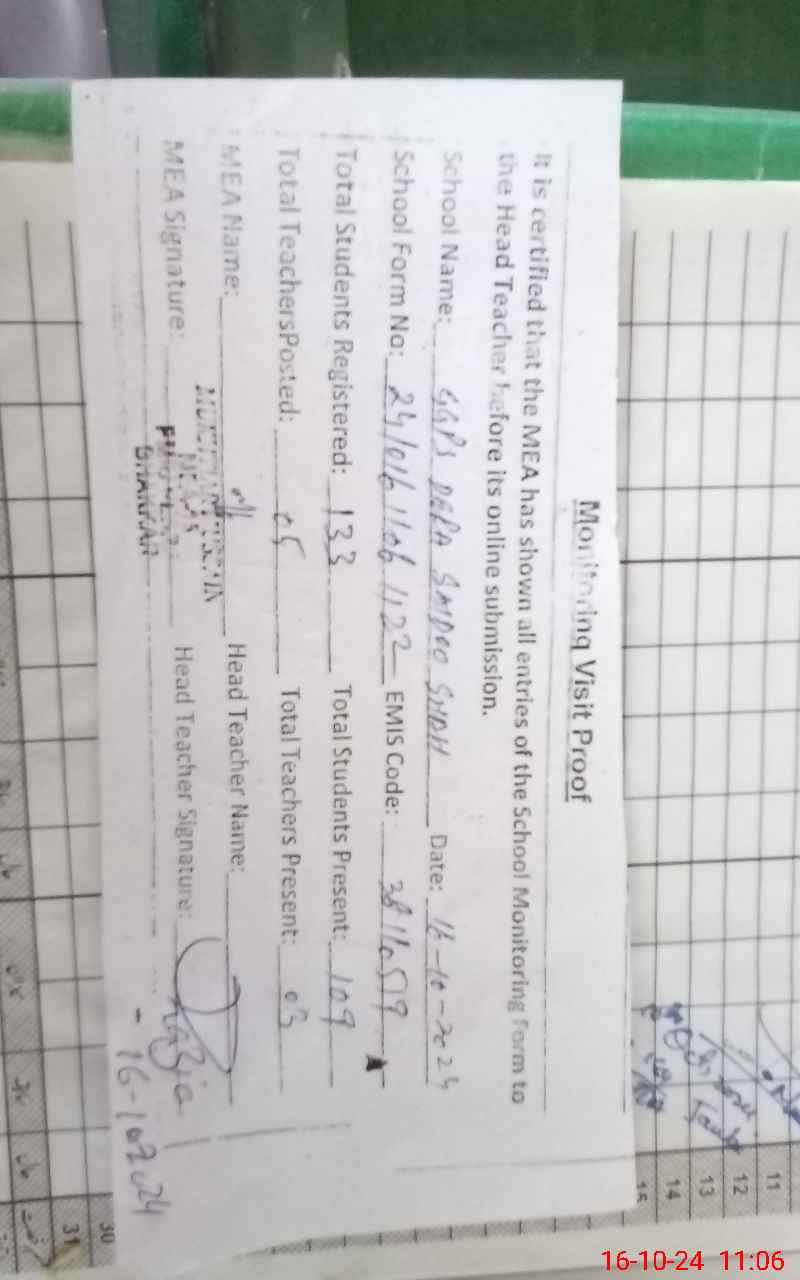 Monitoring Visit Proof
It is certified that the MEA has shown all entries of the School Monitoring Form to
the Head Teacher before its online submission.
School Name: GGPS DERA SAIDOO SHAH Date: 16-10-2024
School Form No: EMIS Code: 38110519
Total Students Registered: 133 Total Students Present: 109
Total TeachersPosted: 05 Total Teachers Present: 03
MEA Name: Head Teacher Name:
MEA Signature: Head Teacher Signature: Razia
BHAKKAR
16-10-2024
11
12
13
14
15
30
31
16-10-24 11:06